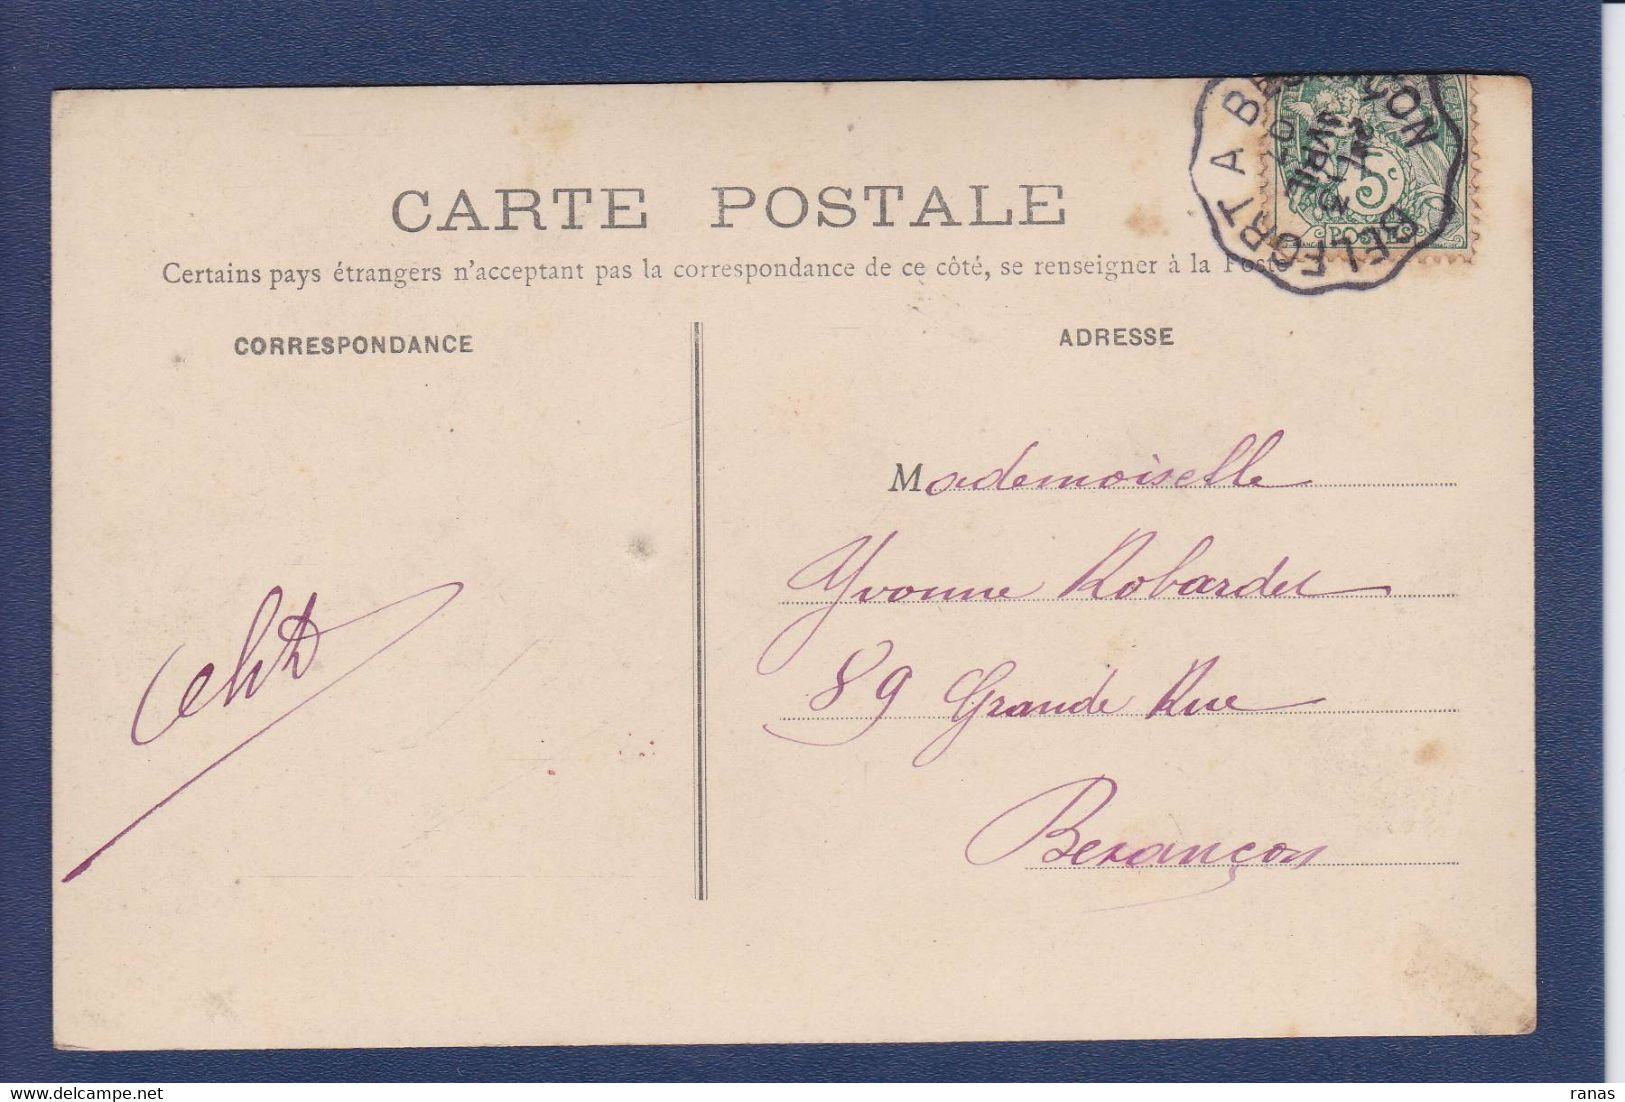 CARTE POSTALE
Certains pays étrangers n'acceptant pas la correspondance de ce côté, se renseigner à la Poste
BELFORT A BESANÇON
5c
POSTES
CORRESPONDANCE
ADRESSE
Mademoiselle
Yvonne Robardet
89 Grande Rue
Besançon
ranas